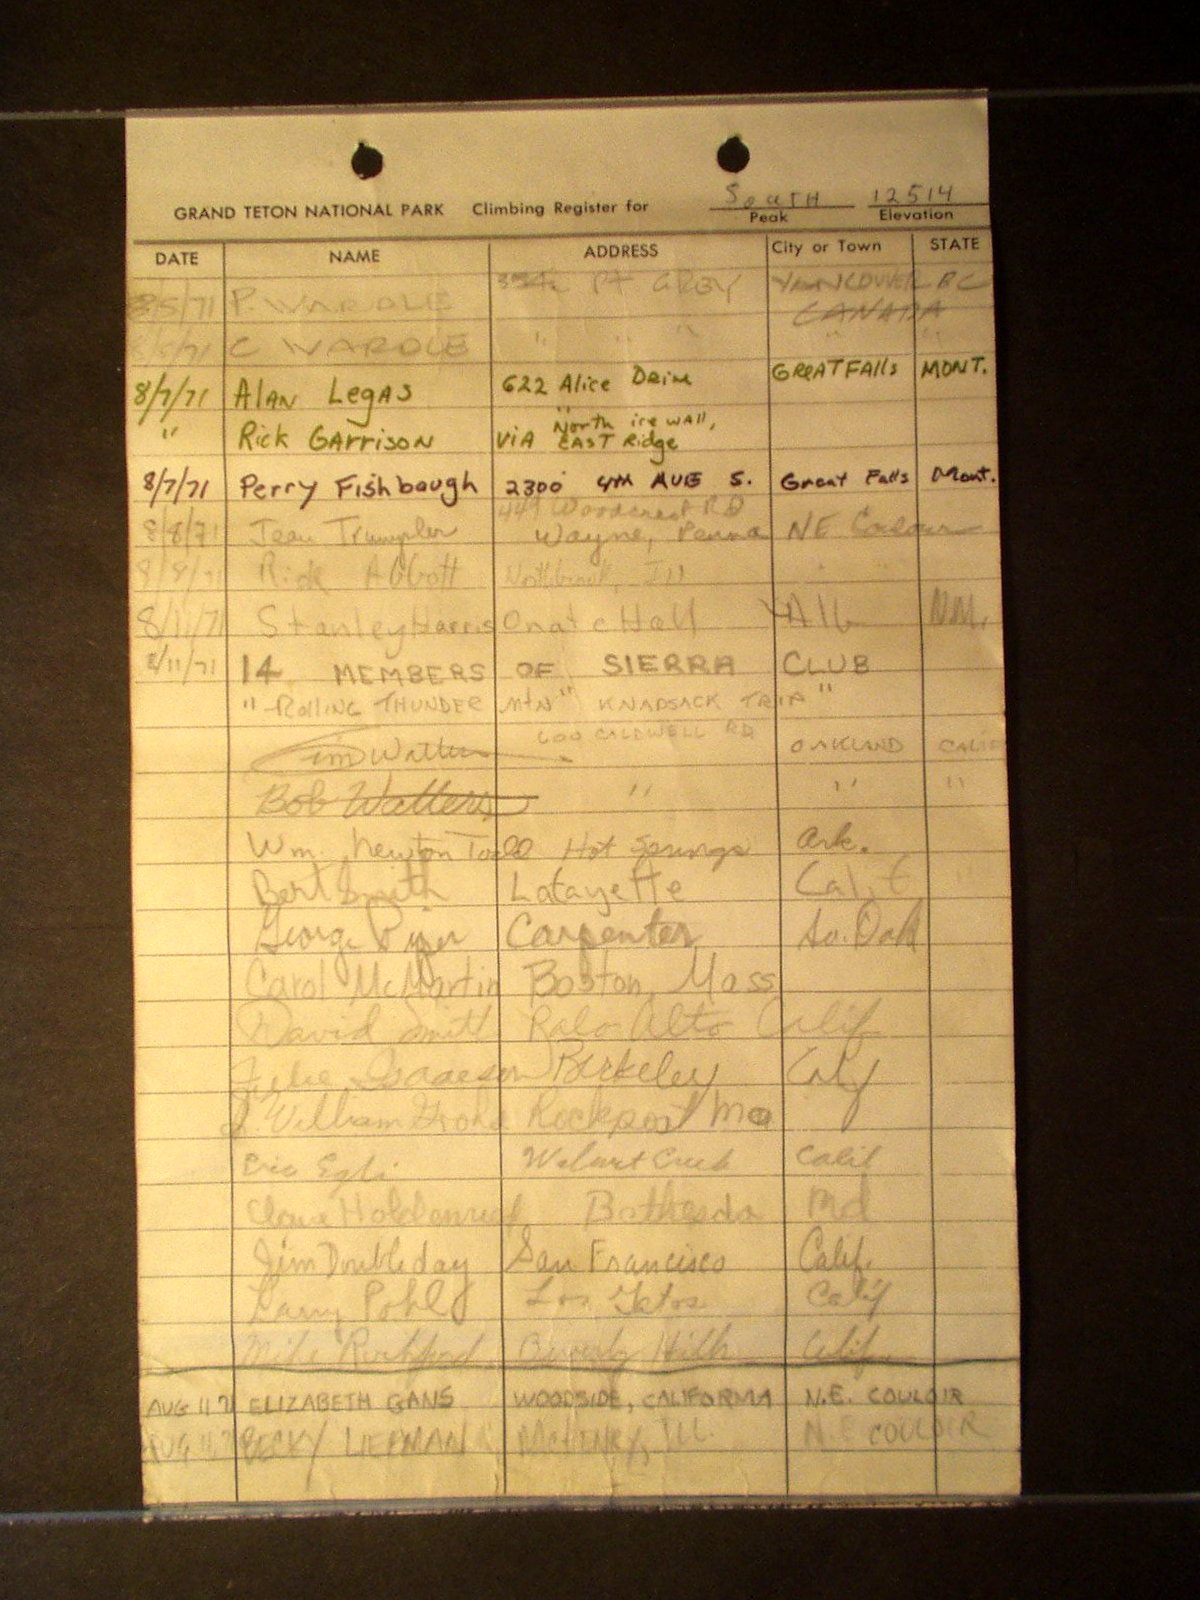 South 12514
GRAND TETON NATIONAL PARK Climbing Register for Peak Elevation
DATE NAME ADDRESS City or Town STATE
8/5/71 P. WARDLE Pt GREY VANCOUVER BC
CANADA
C WARDLE " " " " "
8/7/71 ALAN LegAS 622 Alice Drive GREAT FAlls MONT.
" Rick GARRISON VIA North ice wAll, EAST Ridge
8/7/71 Perry Fishbaugh 2300 4th AVE S. Great Falls Mont.
8/8/71 Jean Trumpler 449 Woodcrest RD Wayne, Penna NE Couloir
8/8/71 Rick Abbott Northbrook, Ill
8/11/71 Stanley Harris Onate Hall Alb N.M.
8/11/71 14 MEMBERS OF SIERRA CLUB
"ROLLING THUNDER MTN" KNAPSACK TRIP"
600 CALDWELL RD OAKLAND CALIF
Bob Walters " " "
Wm. Newton Todd Hot Springs Ark.
Bert Smith Lafayette Calif "
George Carpenter So. Dak
Carol McMartin Boston, Mass
David Smith Palo Alto Calif
Julie Isaacson Berkeley Calif
J. William Rockport Ma
Eric Egli Walnut Creek Calif
Bethesda Md
Jim Doubleday San Francisco Calif.
Larry Pohl Los Gatos Calif
Mike Beverly Hills Calif.
AUG 11 71 ELIZABETH GANS WOODSIDE, CALIFORNIA N.E. COULOIR
AUG 11 71 BECKY LIEPMAN McHENRY, ILL. N.E COULOIR